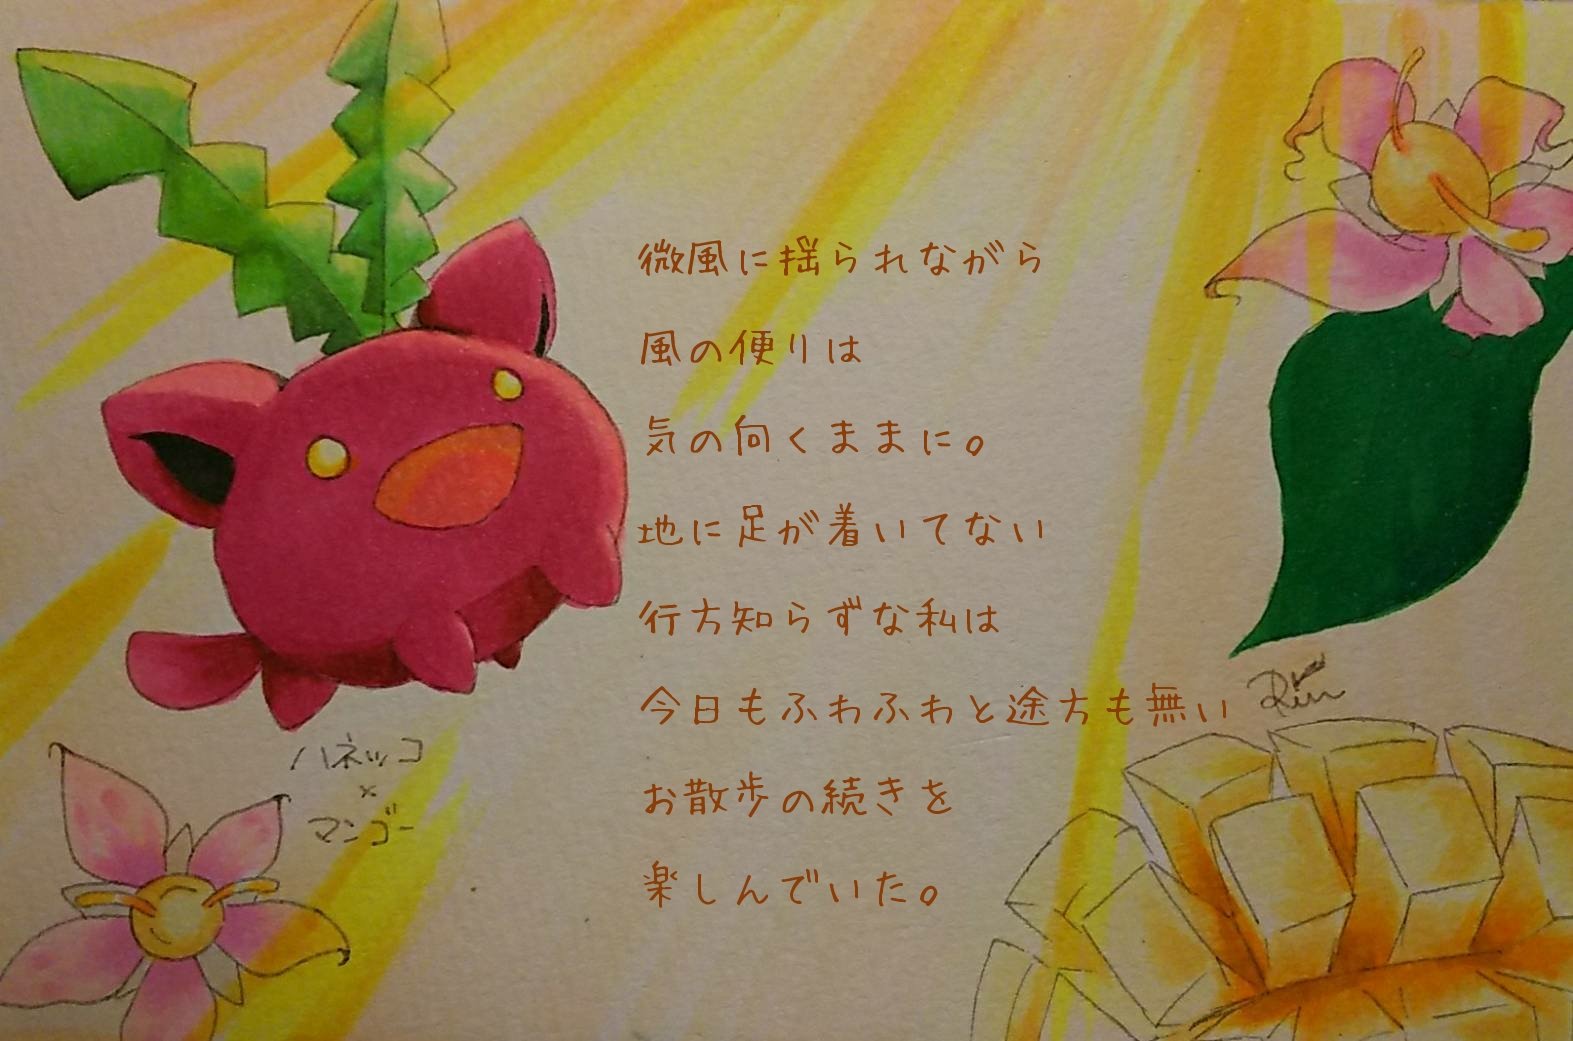 微風に揺られながら
風の便りは
気の向くままに。
地に足が着いてない
行方知らずな私は
今日もふわふわと途方も無い
お散歩の続きを
楽しんでいた。
Rin
ハネッコ
×
マンゴー